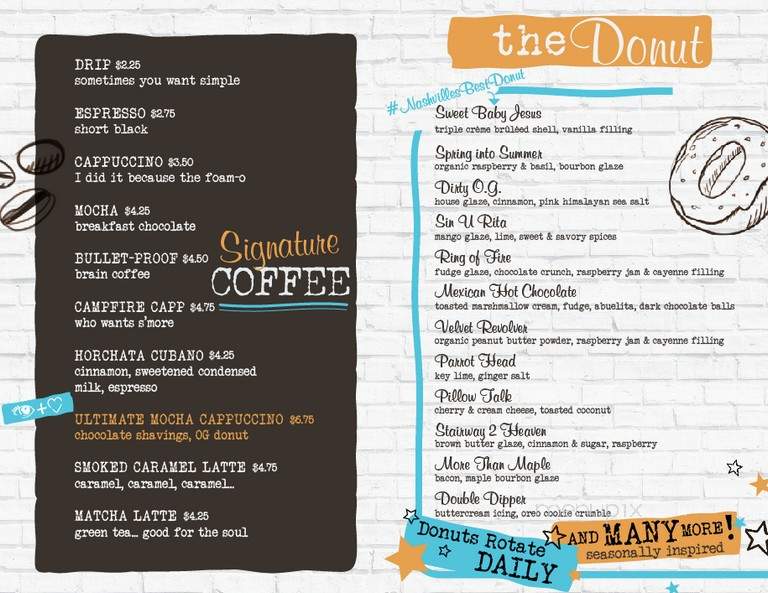 DRIP $2.25
sometimes you want simple
ESPRESSO $2.75
short black
CAPPUCCINO $3.50
I did it because the foam-o
MOCHA $4.25
breakfast chocolate
BULLET-PROOF $4.50
brain coffee
CAMPFIRE CAPP $4.75
who wants s'more
HORCHATA CUBANO $4.25
cinnamon, sweetened condensed
milk, espresso
ULTIMATE MOCHA CAPPUCCINO $6.75
chocolate shavings, OG donut
SMOKED CARAMEL LATTE $4.75
caramel, caramel, caramel...
MATCHA LATTE $4.25
green tea... good for the soul
Signature
COFFEE
the Donut
#NashvillesBestDonut
Sweet Baby Jesus
triple crème brûléed shell, vanilla filling
Spring into Summer
organic raspberry & basil, bourbon glaze
Dirty O.G.
house glaze, cinnamon, pink himalayan sea salt
Sin U Rita
mango glaze, lime, sweet & savory spices
Ring of Fire
fudge glaze, chocolate crunch, raspberry jam & cayenne filling
Mexican Hot Chocolate
toasted marshmallow cream, fudge, abuelita, dark chocolate balls
Velvet Revolver
organic peanut butter powder, raspberry jam & cayenne filling
Parrot Head
key lime, ginger salt
Pillow Talk
cherry & cream cheese, toasted coconut
Stairway 2 Heaven
brown butter glaze, cinnamon & sugar, raspberry
More Than Maple
bacon, maple bourbon glaze
Double Dipper
buttercream icing, oreo cookie crumble
Donuts Rotate
DAILY
AND MANY MORE!
seasonally inspired